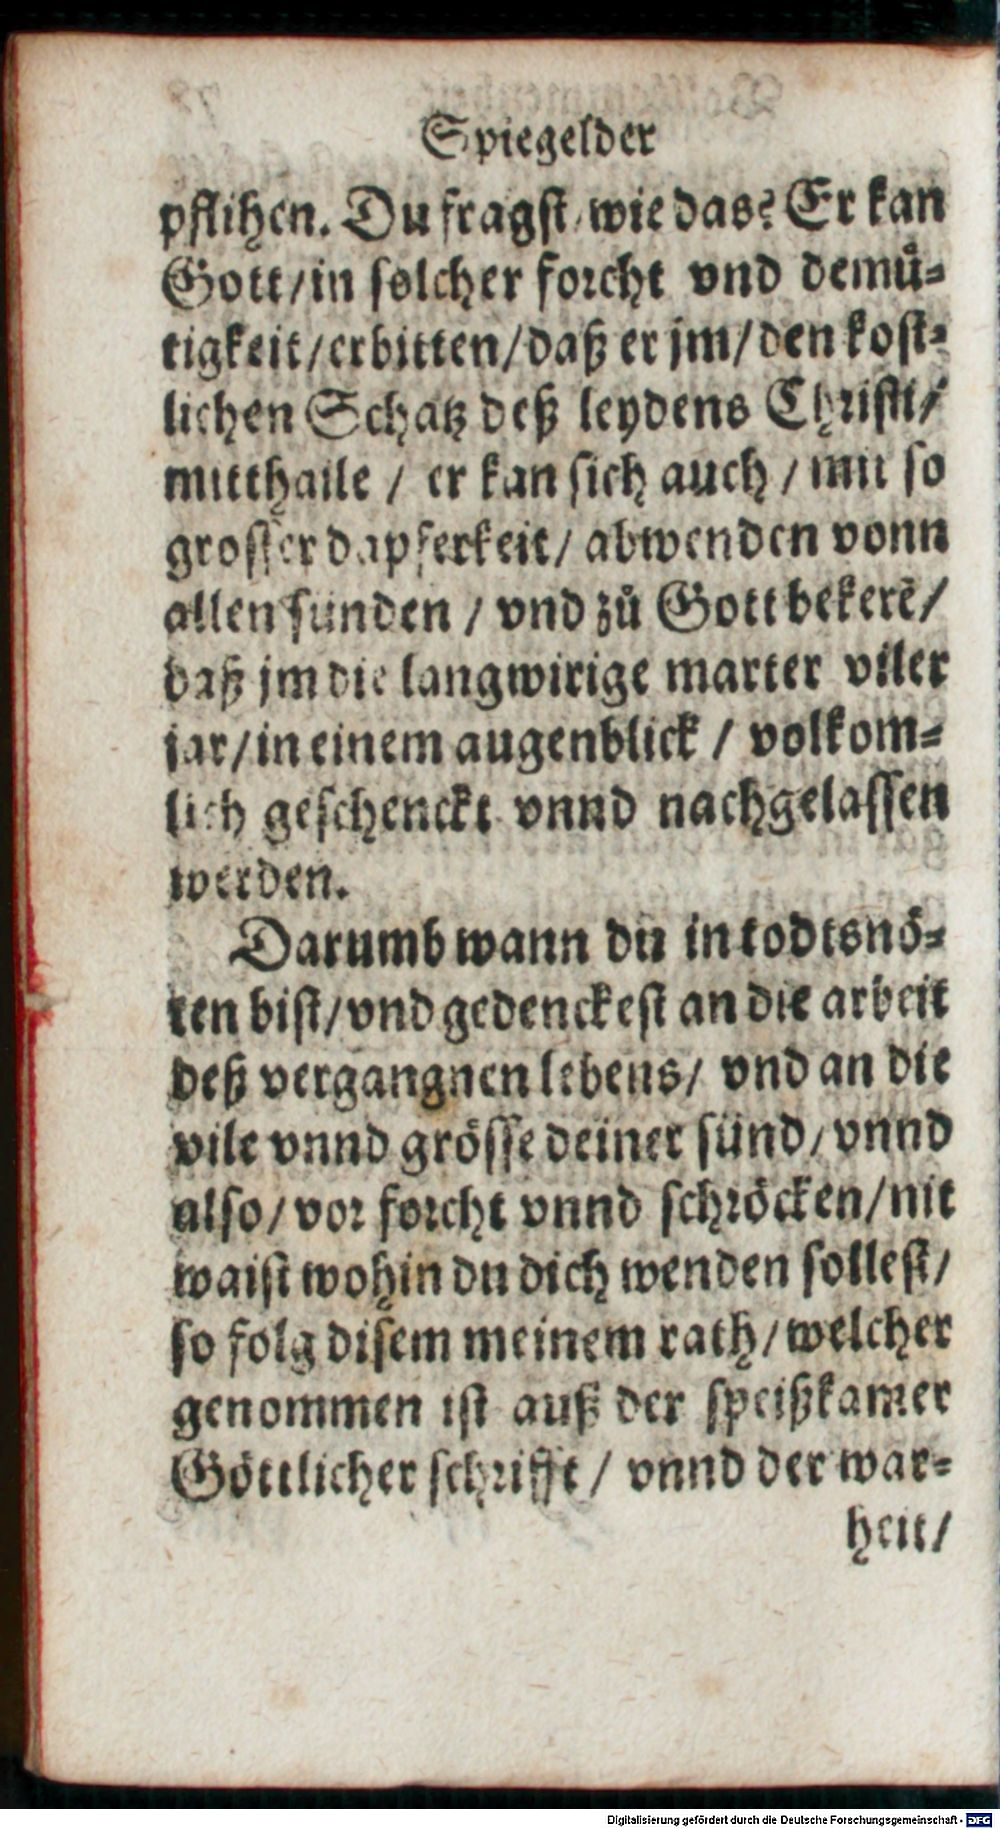 Spiegel der
pflihen. Du fragst / wie das? Er kan
Gott / in solcher forcht vnd demuͤ-
tigkeit / erbitten / daß er jm / den kost-
lichen Schatz deß leydens Christi /
mitthaile / er kan sich auch / mit so
grosser dapferkeit / abwenden vonn
allen sünden / vnd zuͦ Gott bekerē /
daß jm die langwirige marter viler
jar / in einem augenblick / volkom-
lich geschenckt vnnd nachgelassen
werden.
Darumb wann du in todtsnö-
ten bist / vnd gedenckest an die arbeit
deß vergangnen lebens / vnd an die
vile vnnd grösse deiner sünd / vnnd
also / vor forcht vnnd schröcken / nit
waist wohin du dich wenden sollest /
so folg disem meinem rath / welcher
genommen ist auß der speißkamer
Göttlicher schrifft / vnnd der war-
heit /
Digitalisierung gefördert durch die Deutsche Forschungsgemeinschaft - DFG